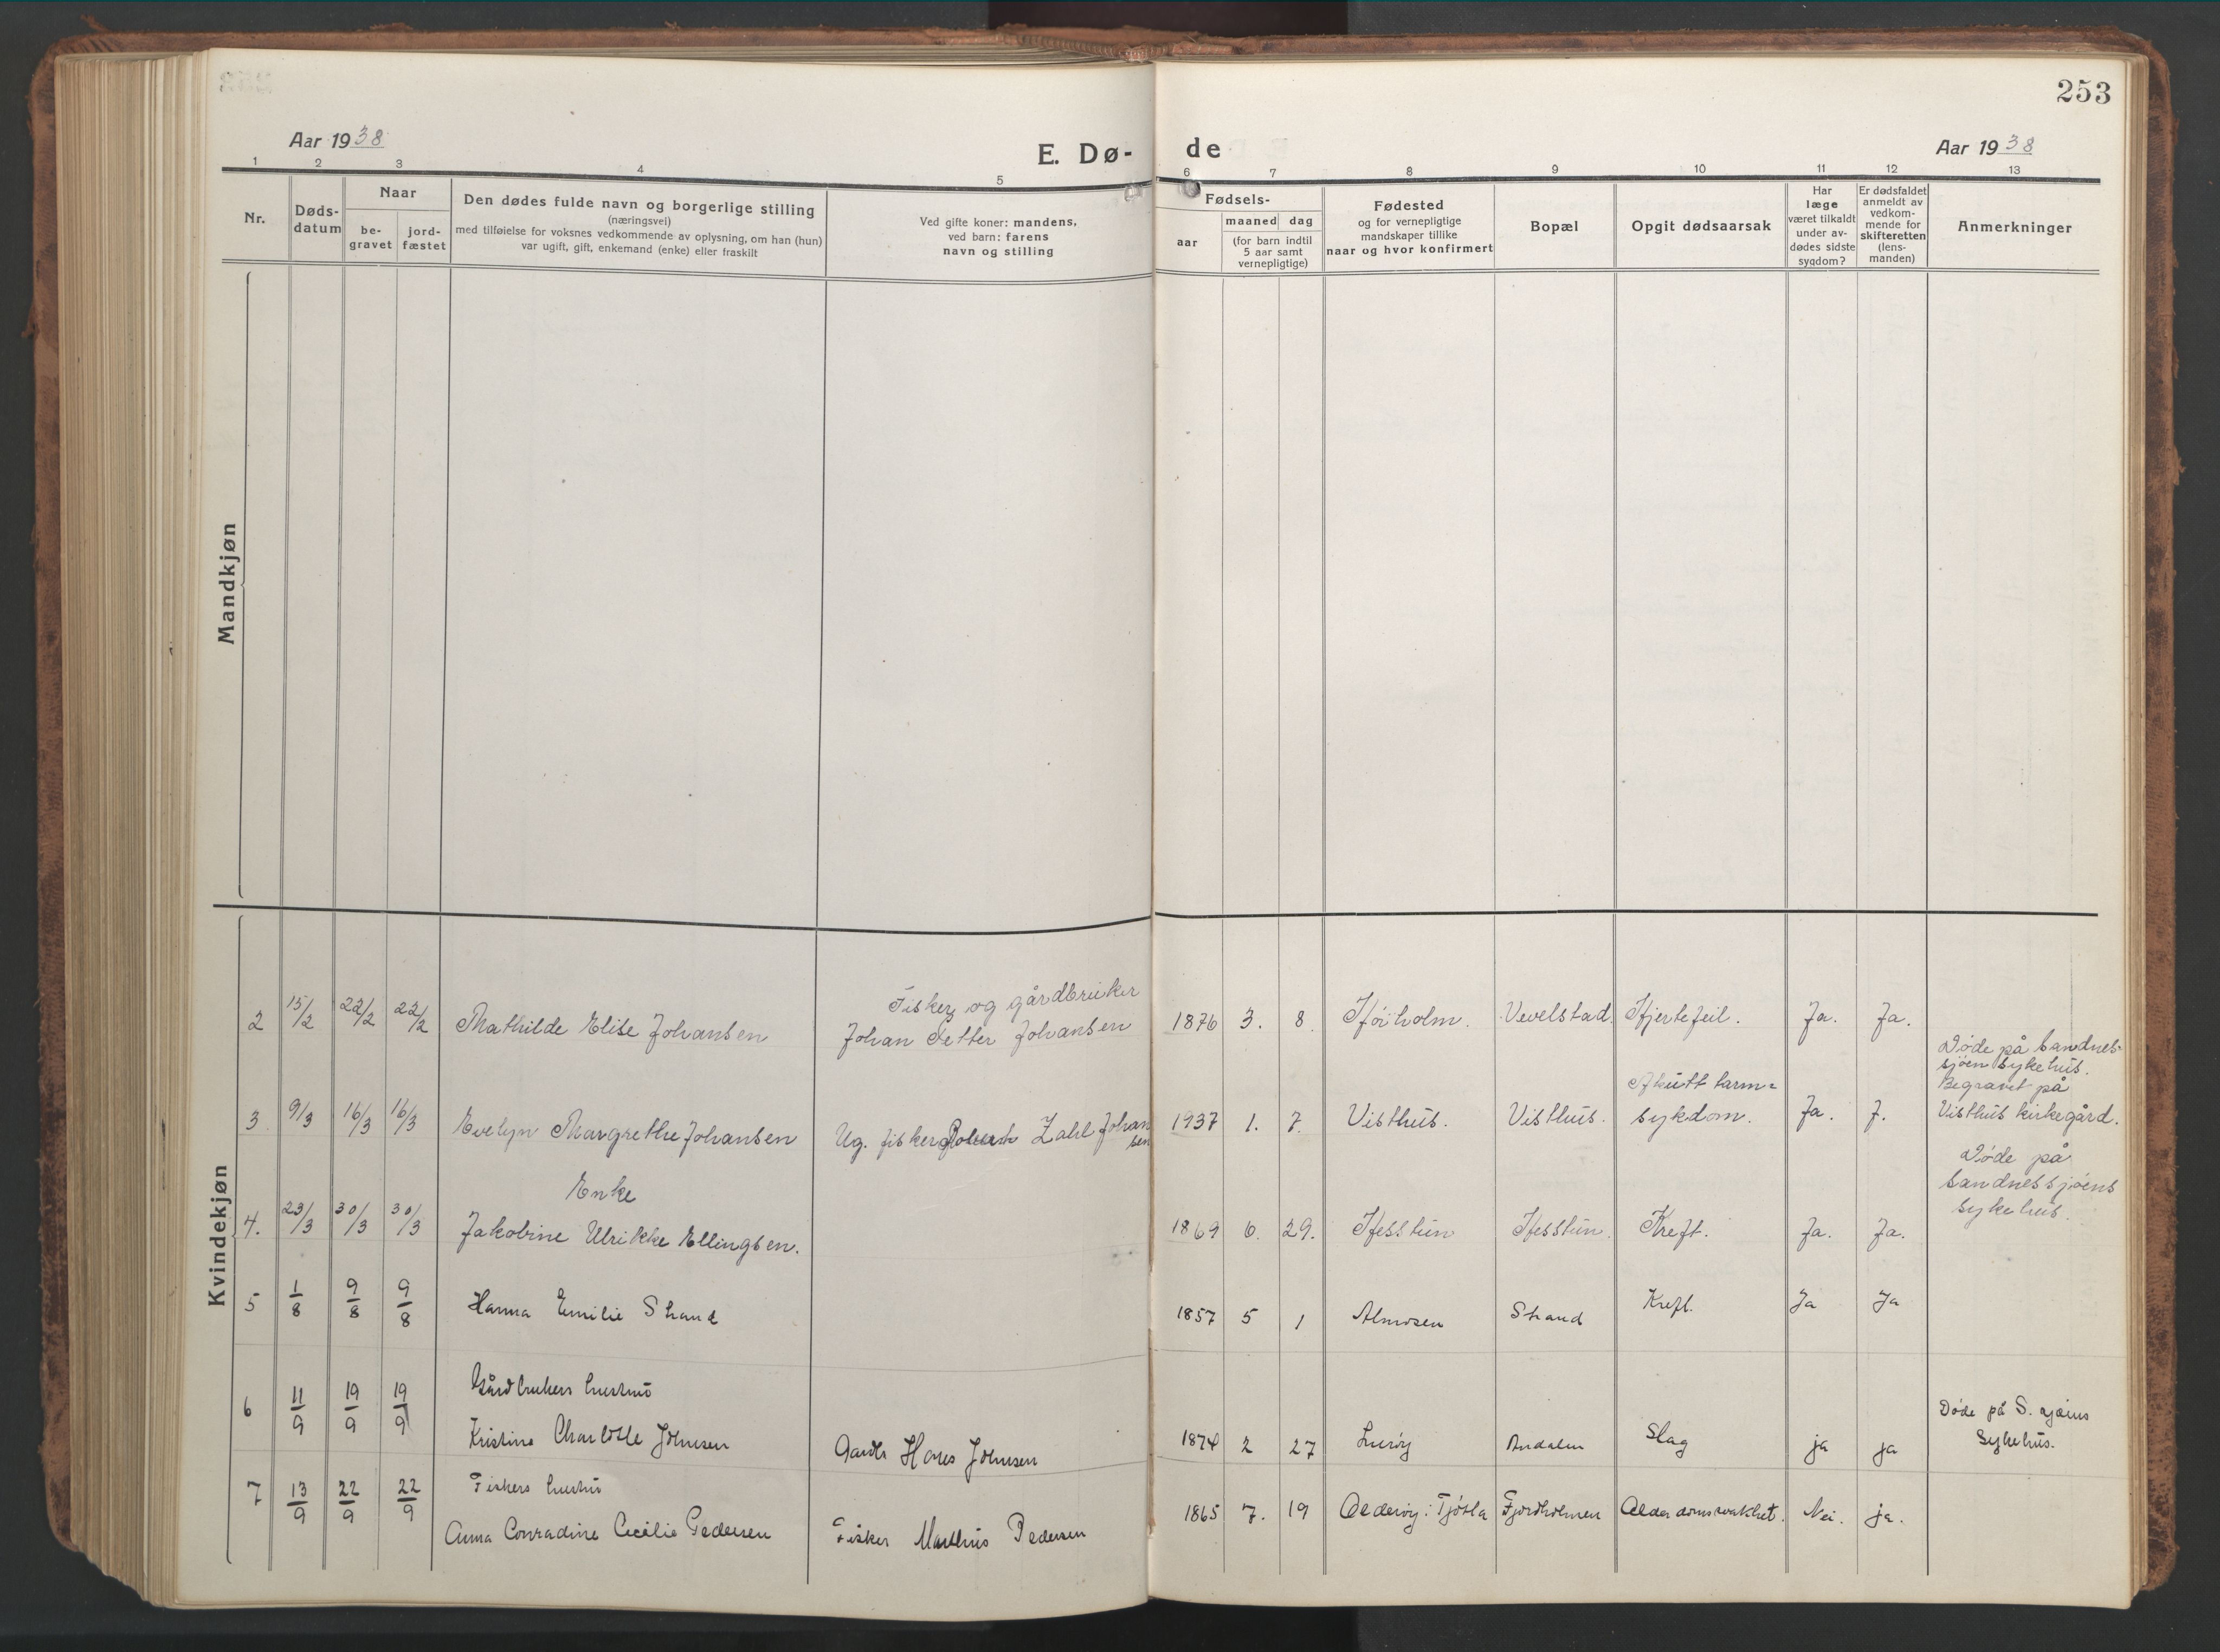 253
Aar 1938
E. Dø-
de
Aar 1938
1 2 3 4 5 6 7 8 9 10 11 12 13
Nr.
Døds-
datum
Naar
be-
gravet
jord-
fæstet
Den dødes fulde navn og borgerlige stilling
(næringsvei)
med tilføielse for voksnes vedkommende av oplysning, om han (hun)
var ugift, gift, enkemand (enke) eller fraskilt
Ved gifte koner: mandens,
ved barn: farens
navn og stilling
Fødsels-
aar
maaned dag
(for barn indtil
5 aar samt
vernepligtige)
Fødested
og for vernepligtige
mandskaper tillike
naar og hvor konfirmert
Bopæl
Opgit dødsaarsak
Har
læge
været tilkaldt
under av-
dødes sidste
sygdom?
Er dødsfaldet
anmeldt av
vedkom-
mende for
skifteretten
(lens-
manden)
Anmerkninger
Mandkjøn
Kvindekjøn
Fisker og gårdbruker
2 15/2 22/2 22/2 Mathilde Elise Johansen Johan Petter Johansen 1876 3. 8. Vevelstad. Hjertefeil. Ja. Ja.
Døde på Sandnes-
sjøen sykehus.
Begravet på
Akutt tarm=
3 9/3 16/3 16/3 Evelyn Margrethe Johansen Ug. fisker Zahl Johan 1937 1. 7. Visthus. Visthus. sykdom. Ja. J. Visthus kirkegård.
sen
Døde på
Sandnessjøens
sykehus.
Enke
4. 23/3 30/3 30/3 Jakobine Ulrikke Ellingsen. 1869 6. 29. Hesstun Hesstun. Kreft. Ja. Ja.
5 1/8 9/8 9/8 Hanna Emilie Strand 1857 5 1 Almosen Strand Kreft. Ja Ja
Gårdbrukers hustru
6 11/9 19/9 19/9 Kristine Charlotte Johnsen Hans Johnsen 1874 2 27 Lurøy Slag ja ja
Døde på S. sjøens
Sykehus.
Fiskers hustru
7 13/9 22/9 22/9 Anna Conradine Cecilie Pedersen Fisker Pedersen 1865 7. 19 Alderøy i Tjøtta Fjordholmen Alderdomssvakhet. Nei. ja.